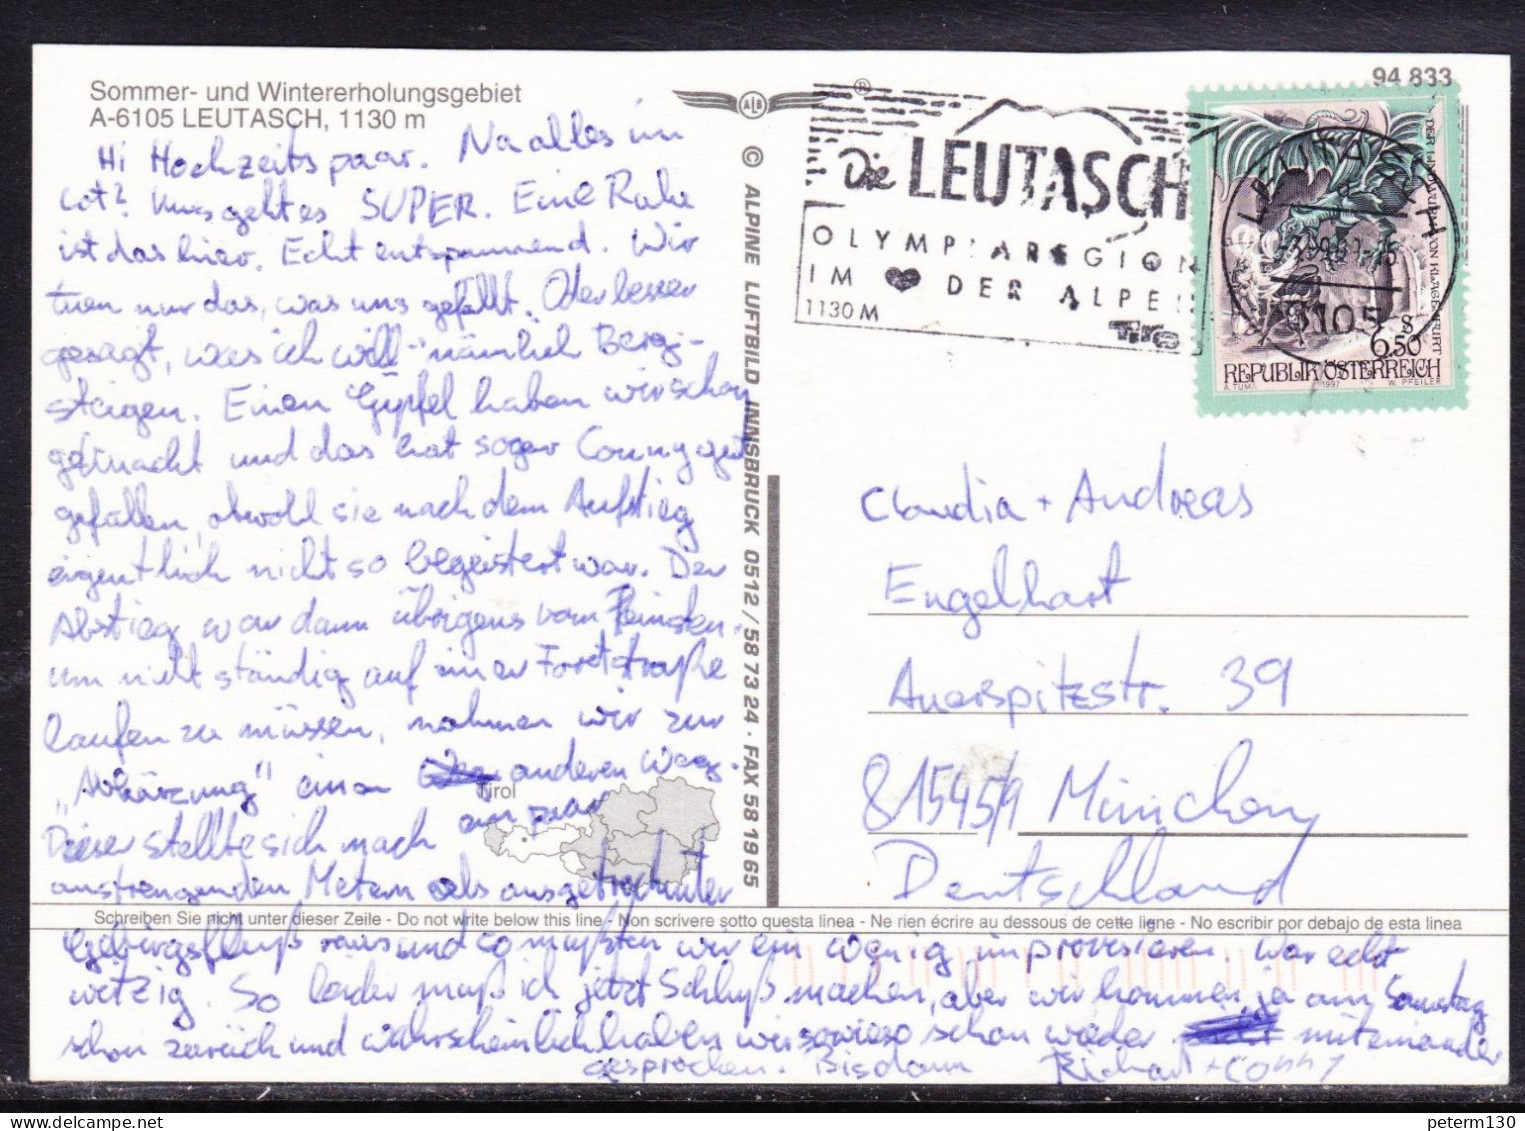 Sommer- und Wintererholungsgebiet
A-6105 LEUTASCH, 1130 m
Hi Hochzeitspaar. Na alles im
Lot? Uns geht es SUPER. Eine Ruhe
ist das hier. Echt entspannend. Wir
tuen nur das, was uns gefällt. Oder besser
gesagt, was ich will - nämlich Berg-
steigen. Einen Gipfel haben wir schon
gemacht und das hat sogar Conny gut
gefallen, obwohl sie nach dem Aufstieg
eigentlich nicht so begeistert war. Der
Abstieg war dann übrigens vom Feinsten.
Um nicht ständig auf einer Forststraße
laufen zu müssen, nahmen wir zur
„Abkürzung" einen anderen Weg.
Dieser stellte sich nach ein paar
anstrengenden Metern als ausgetrockneter
Gebirgsfluß raus und so mußten wir ein wenig improvisieren. War echt
witzig. So leider muß ich jetzt Schluß machen, aber wir kommen ja am Samstag
schon zurück und wahrscheinlich haben wir sowieso schon wieder miteinander
gesprochen. Bis dann Richard + Conny
Tirol
© ALPINE LUFTBILD INNSBRUCK 0512/58 73 24 · FAX 58 19 65
ALB
®
94 833
Die LEUTASCH
OLYMPIAREGION
IM ❤ DER ALPEN
1130 M
Tirol
LEUTASCH
6105
DER LINDWURM VON KLAGENFURT
S 6,50
REPUBLIK ÖSTERREICH
A. TUMA 1997 W. PFEILER
Claudia + Andreas
Engelhart
Auerspitzstr. 39
81545/9 München
Deutschland
Schreiben Sie nicht unter dieser Zeile - Do not write below this line - Non scrivere sotto questa linea - Ne rien écrire au dessous de cette ligne - No escribir por debajo de esta linea
peterm130